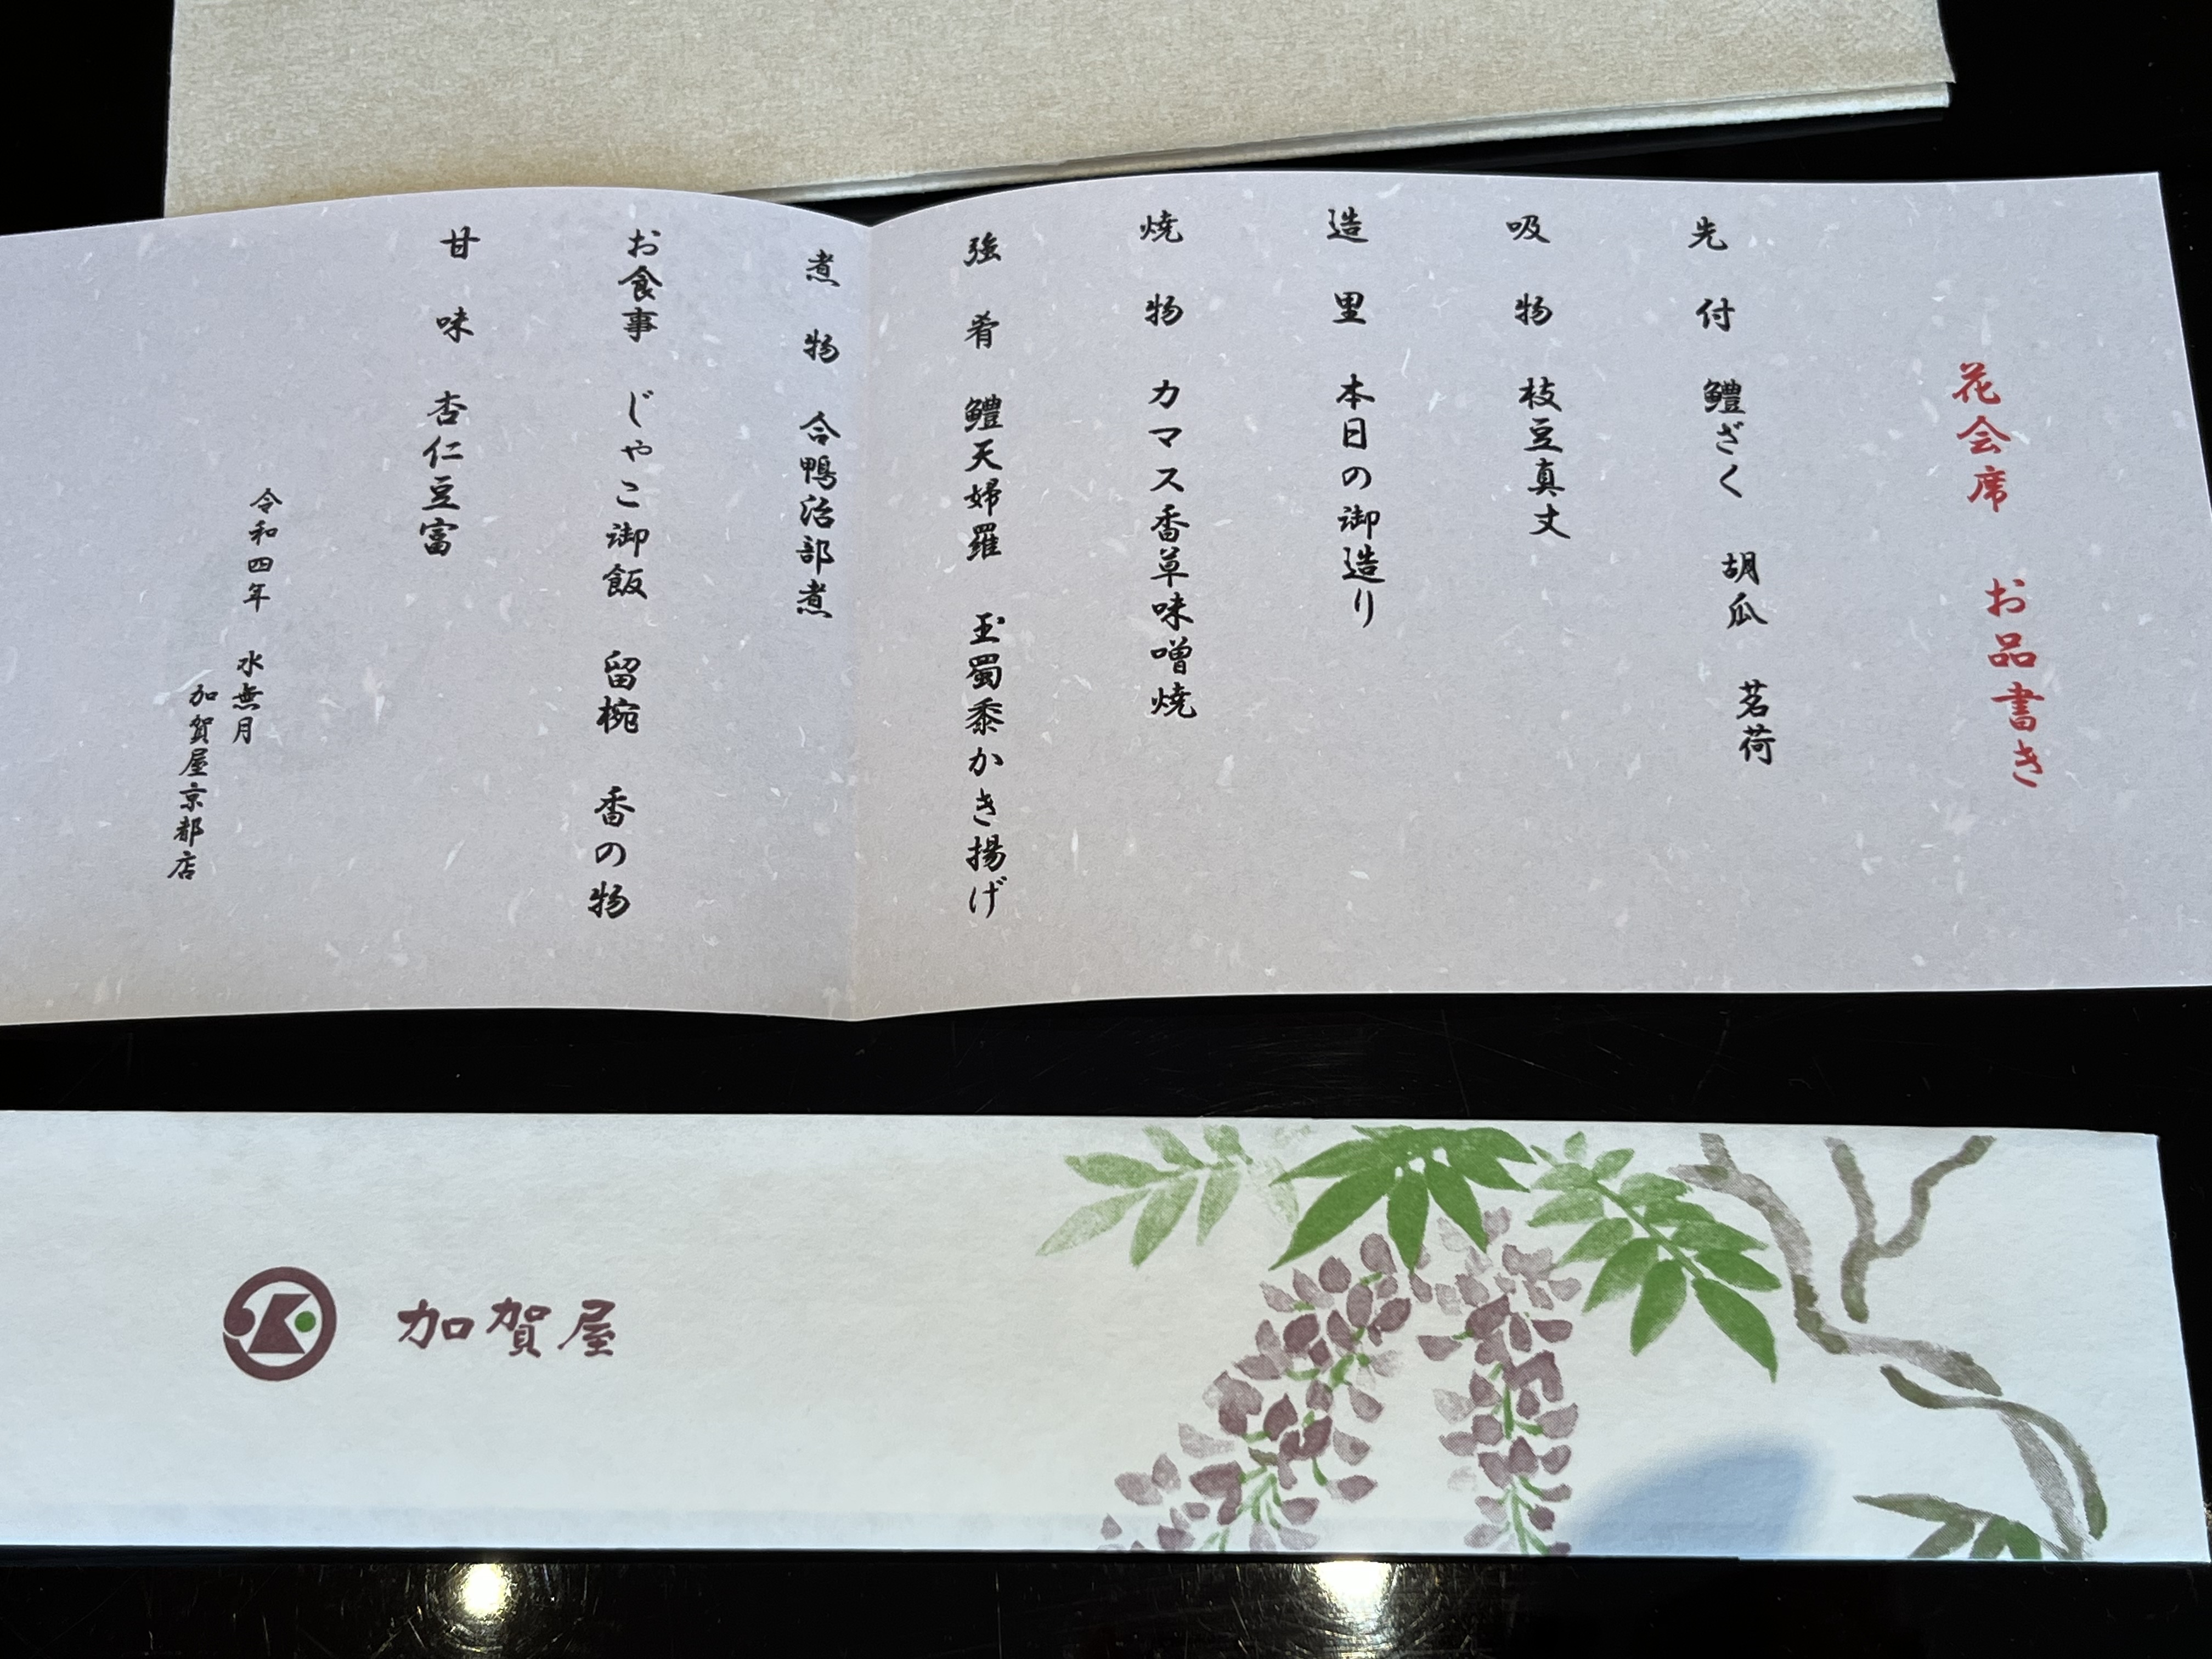 花会席 お品書き
先付 鱧ざく 胡瓜 茗荷
吸物 枝豆真丈
造里 本日の御造り
焼物 カマス香草味噌焼
強肴 鱧天婦羅 玉蜀黍かき揚げ
煮物 合鴨治部煮
お食事 じゃこ御飯 留椀 香の物
甘味 杏仁豆富
令和四年 水無月
加賀屋京都店
加賀屋